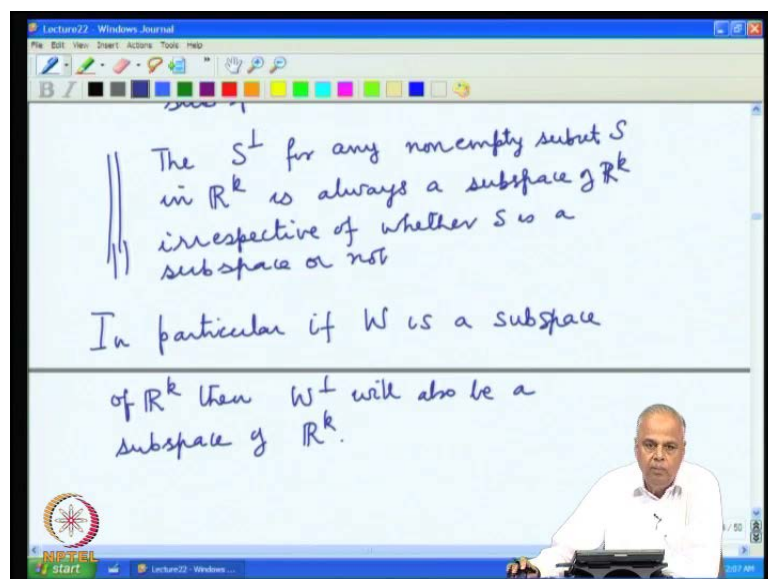 Lecture22 - Windows Journal
File Edit View Insert Actions Tools Help
B I
The S⊥ for any nonempty subset S
in ℝk is always a subspace of ℝk
irrespective of whether S is a
subspace or not
In particular if W is a subspace
of ℝk then W⊥ will also be a
subspace of ℝk.
/ 50
NPTEL
start Lecture22 - Windows ... 2:07 AM